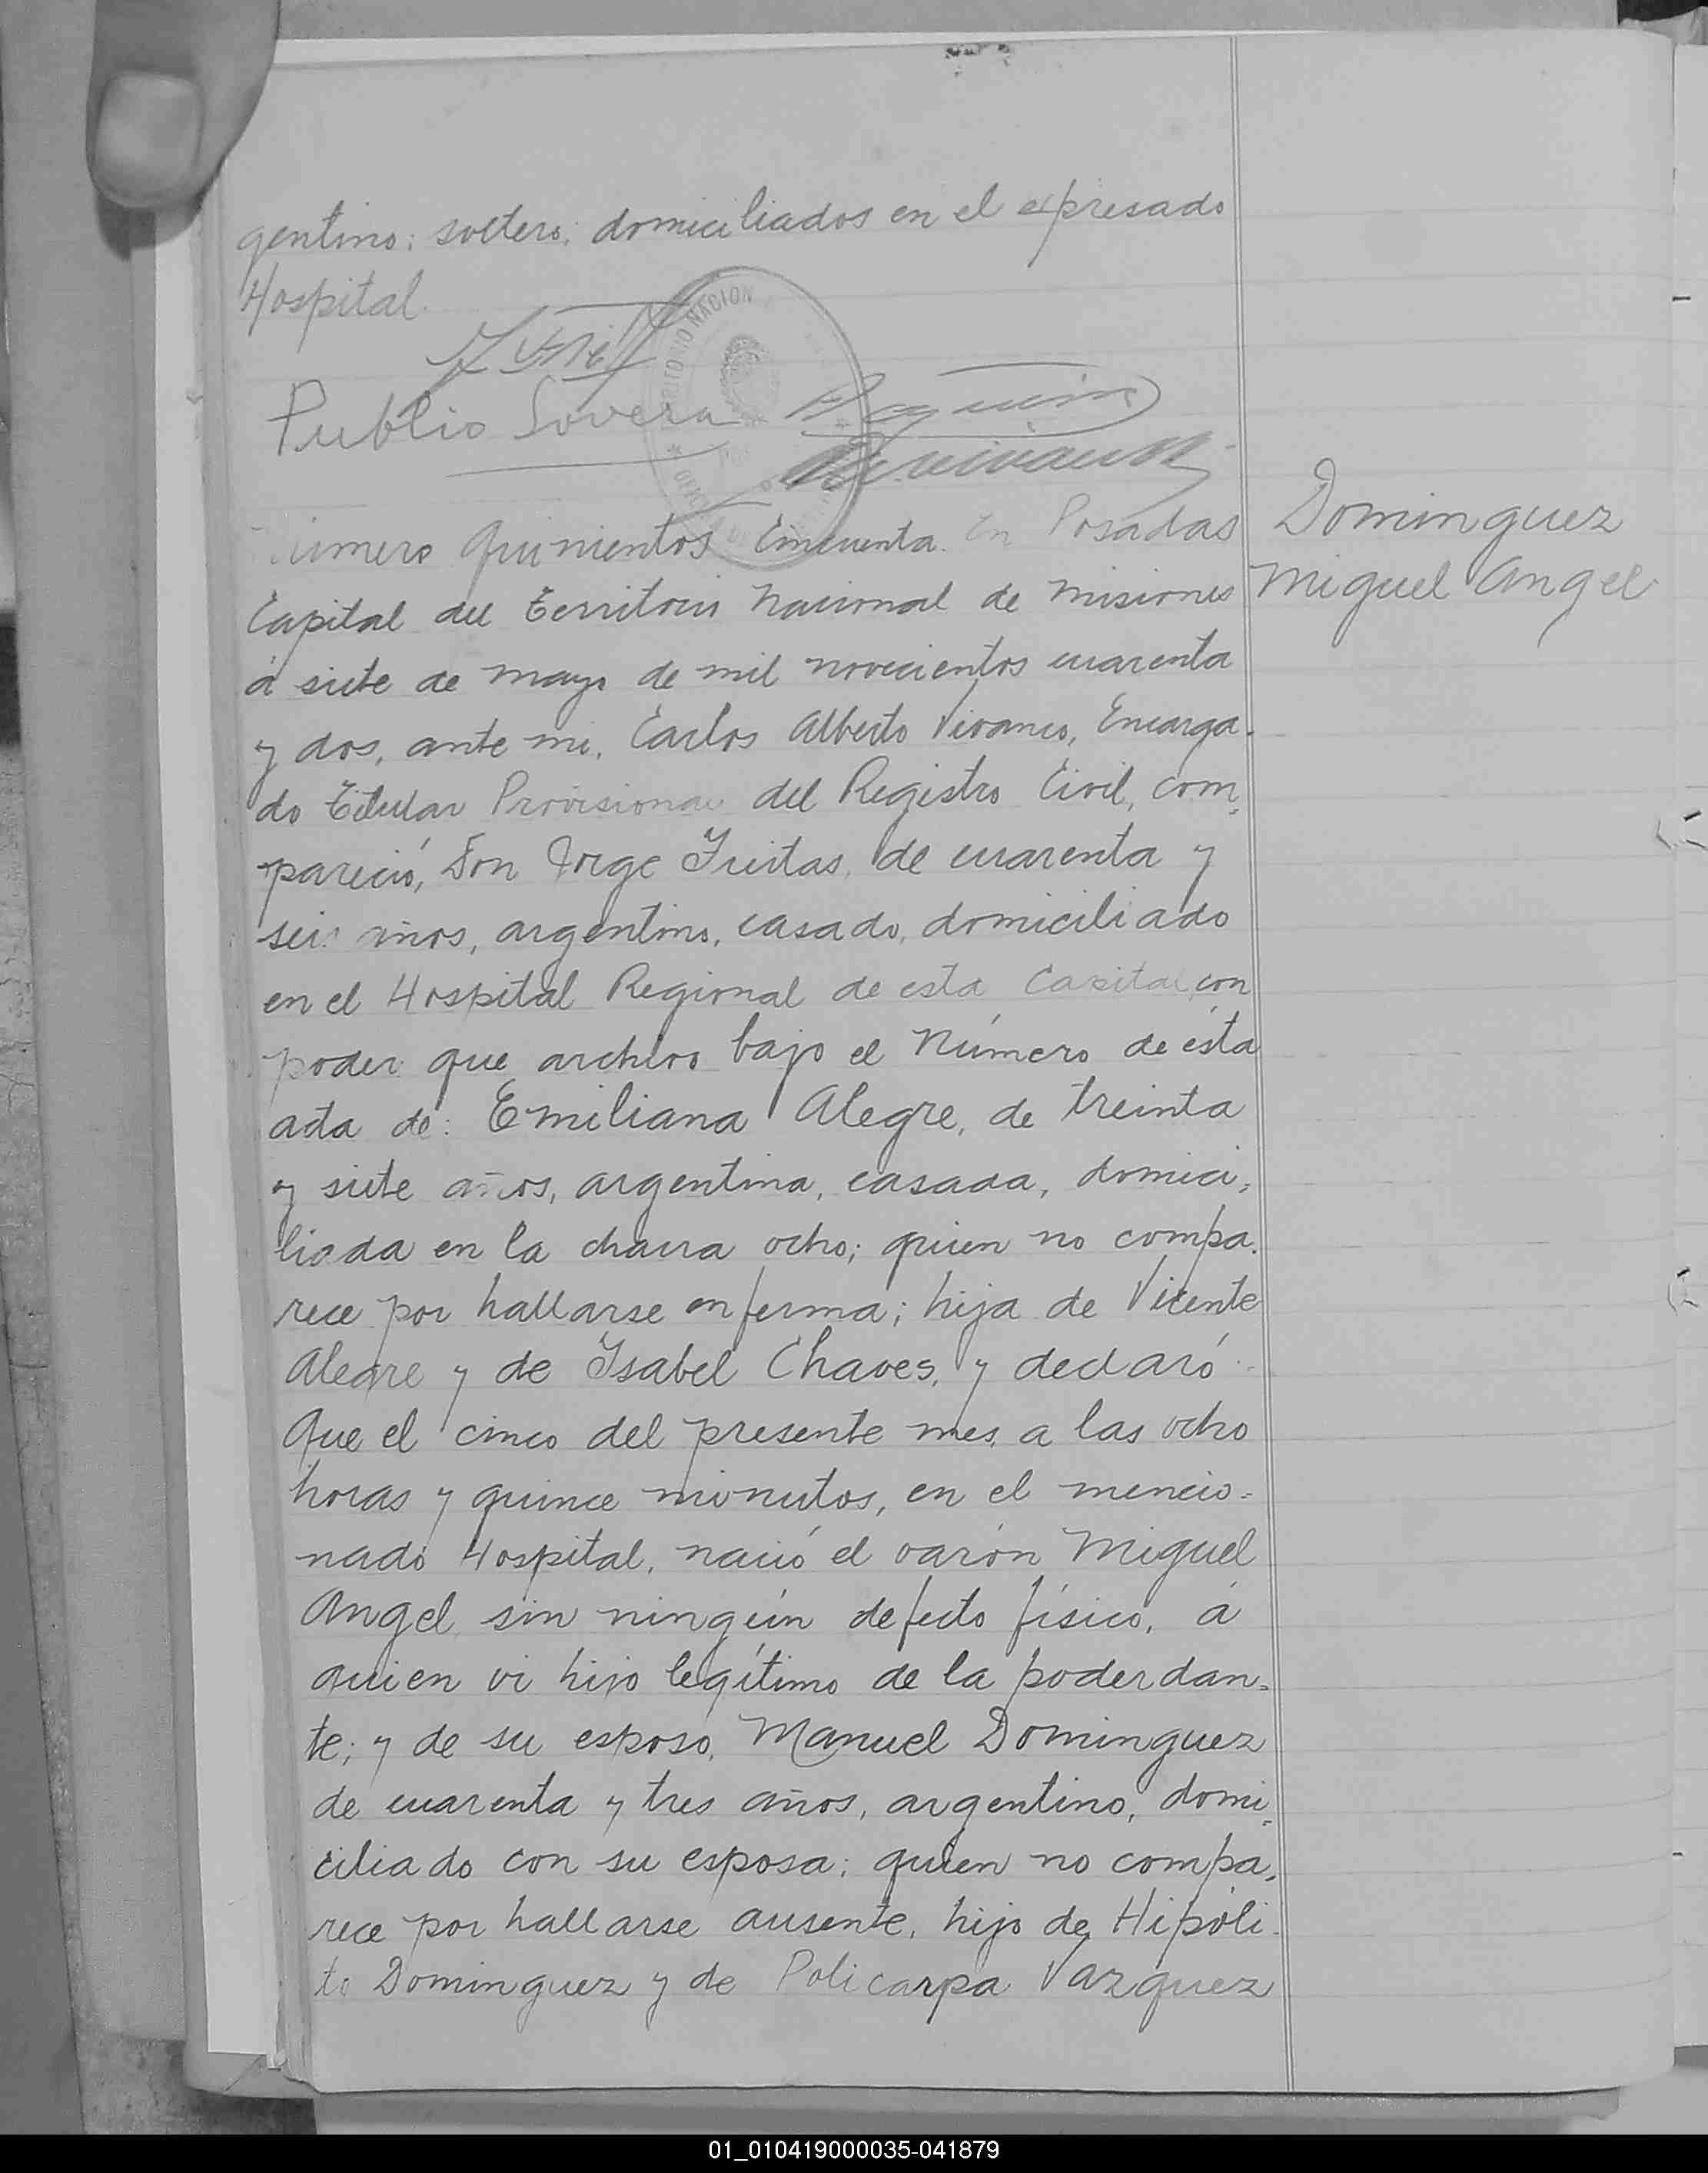 gentino; soltero; domiciliados en el expresado
Hospital.
Publio Sovera
Número Quinientos Cincuenta. En Posadas
Capital del Territorio Nacional de Misiones
á siete de mayo de mil novecientos cuarenta
y dos, ante mi, Carlos Alberto Vivanco, Encarga-
do Titular Provisional del Registro Civil, com-
pareció, Don Jorge Freitas, de cuarenta y
seis años, argentino, casado, domiciliado
en el Hospital Regional de esta Capital, con
poder que archivo bajo el Número de ésta
acta de: Emiliana Alegre, de treinta
y siete años, argentina, casada, domici-
liada en la chacra ocho; quien no compa-
rece por hallarse enferma; hija de Vicente
Alegre y de Isabel Chaves, y declaró:
Que el cinco del presente mes, a las ocho
horas y quince minutos, en el mencio-
nado Hospital, nació el varón Miguel
Angel sin ningún defecto físico, á
quien vi hijo legítimo de la poderdan-
te; y de su esposo, Manuel Dominguez
de cuarenta y tres años, argentino, domi-
ciliado con su esposa; quien no compa-
rece por hallarse ausente, hijo de Hipóli-
to Dominguez y de Policarpa Vazquez
Dominguez
Miguel Angel
01_010419000035-041879